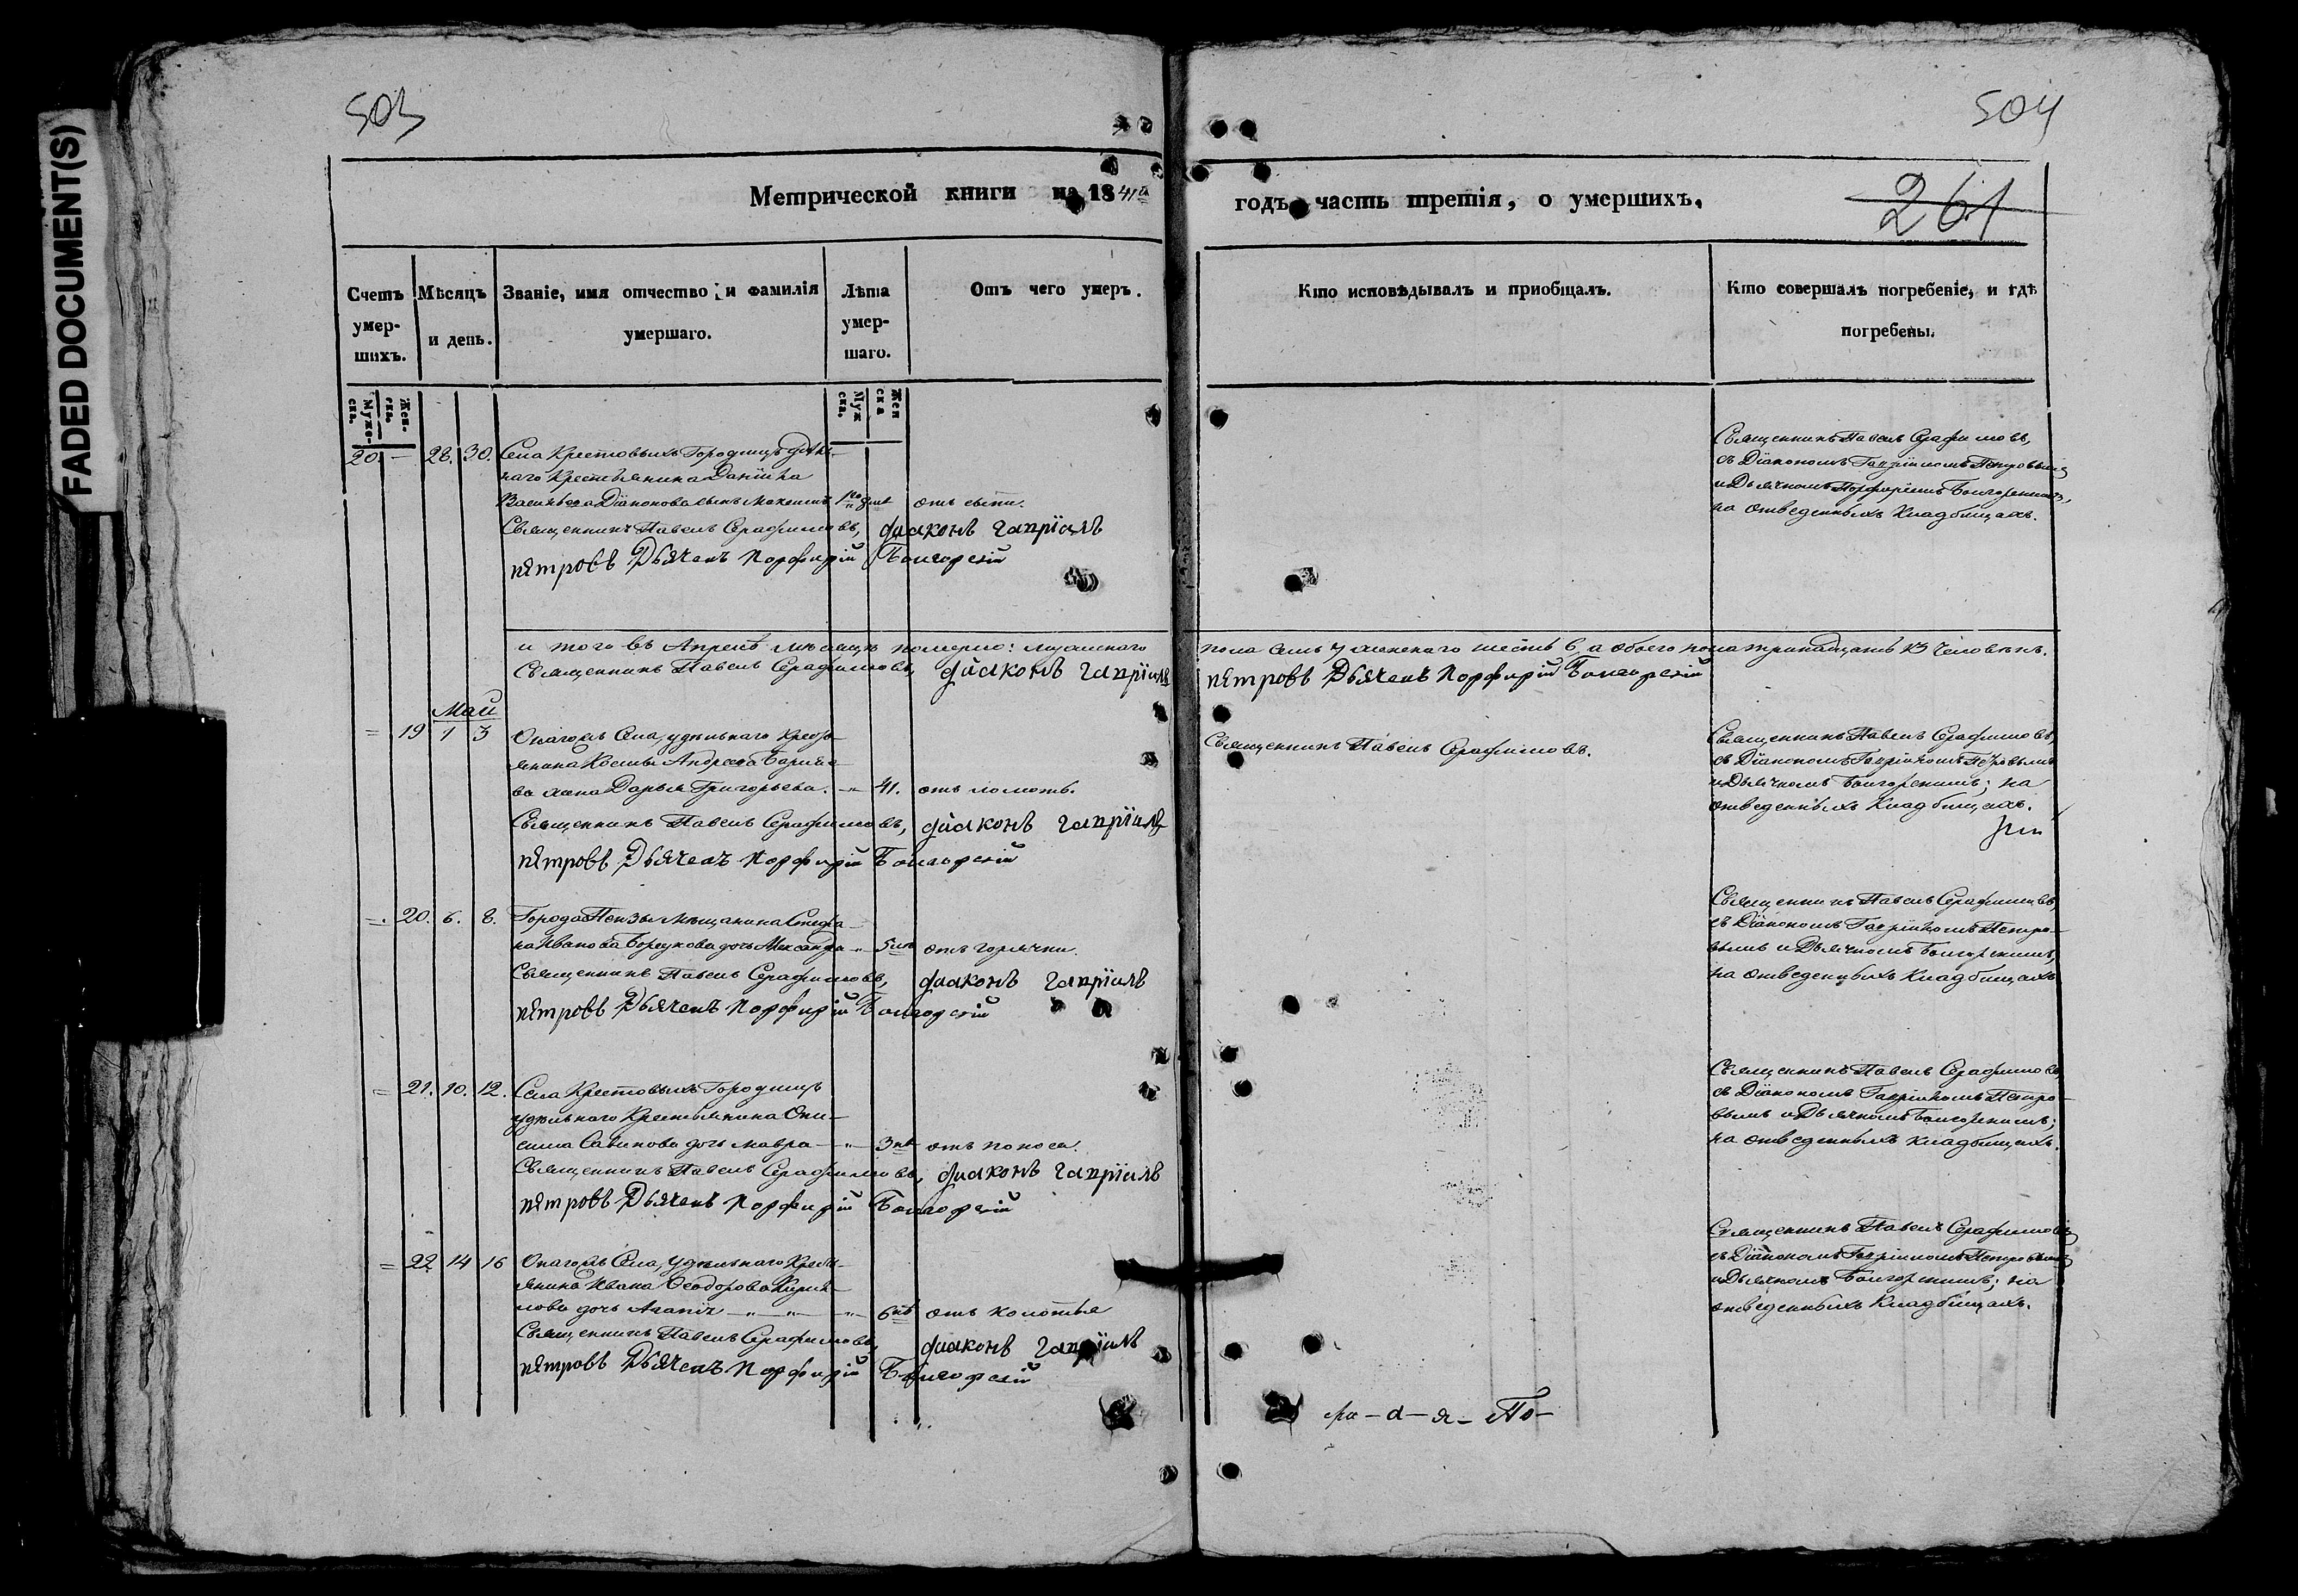 FADED DOCUMENT(S)
503
504
Метрической книги на 1841й
годъ часть третія, о умершихъ.
261
Счетъ умер- шихъ.
Мѣсяцъ и день.
Званіе, имя отчество и фамилія умершаго.
Лѣта умер- шаго.
Отъ чего умеръ.
Кто исповѣдывалъ и приобщалъ.
Кто совершалъ погребеніе, и гдѣ
погребены.
Муже- ска.
Жен- ска.
Муж ска.
Жен ска
20. — 28. 30. Села Крестовыхъ Городищъ
наго Крестьянина
Васильева Діаконова сынъ отъ сыпи.
Священникъ Павелъ Серафимовъ, діаконъ гавріилъ
пѣтровъ Дьячекъ Порфирій
Священникъ Павелъ Серафимовъ,
съ Діакономъ Гавріиломъ Петровымъ
и Дьячкомъ Порфиріемъ
на отведенныхъ Кладбищахъ.
и того въ Апрелѣ мѣсяцѣ померло: мужескаго
пола семь 7 женскаго шесть 6, а обоего пола тринадцать 13 человѣкъ.
Священникъ Павелъ Серафимовъ, діаконъ гавріилъ
пѣтровъ Дьячекъ Порфирій
Май
= 19 1 3 Онагожъ Села, удѣльнаго Кресть-
янина Космы Андреева
ва жена Дарья Григорьева. — " 41. отъ ломоть.
Священникъ Павелъ Серафимовъ, діаконъ гавріилъ
пѣтровъ Дьячекъ Порфирій
Священникъ Павелъ Серафимовъ.
Священникъ Павелъ Серафимовъ,
съ Діакономъ Гавріиломъ Петровымъ
и Дьячкомъ на
отведенныхъ Кладбищахъ.
=. 20. 6. 8. Города Пензы Мѣщанина Стефа-
на Иванова дочь Александра — " отъ горячки.
Священникъ Павелъ Серафимовъ, діаконъ гавріилъ
пѣтровъ Дьячекъ Порфирій
Священникъ Павелъ Серафимовъ,
съ Діакономъ Гавріиломъ Петро-
вымъ и Дьячкомъ
на отведенныхъ Кладбищахъ
= 21. 10. 12. Села Крестовыхъ Городищъ
удѣльнаго Крестьянина Они-
сима Савинова дочь Мавра — " — 3 отъ поноса.
Священникъ Павелъ Серафимовъ, діаконъ гавріилъ
пѣтровъ Дьячекъ Порфирій
Священникъ Павелъ Серафимовъ,
съ Діакономъ Гавріиломъ Петро-
вымъ и Дьячкомъ
на отведенныхъ кладбищахъ.
= 22 14 16 Онагожъ Села, Удѣльнаго Кресть-
янина Ивана Ѳеодорова Кирил-
лова дочь — " — " — 6 отъ колотья
Священникъ Павелъ Серафимовъ, діаконъ гавріилъ
пѣтровъ Дьячекъ Порфирій
Священникъ Павелъ Серафимовъ
съ Діакономъ Гавріиломъ Петровымъ
и Дьячкомъ на
отведенныхъ Кладбищахъ.
ра — d — я — По —